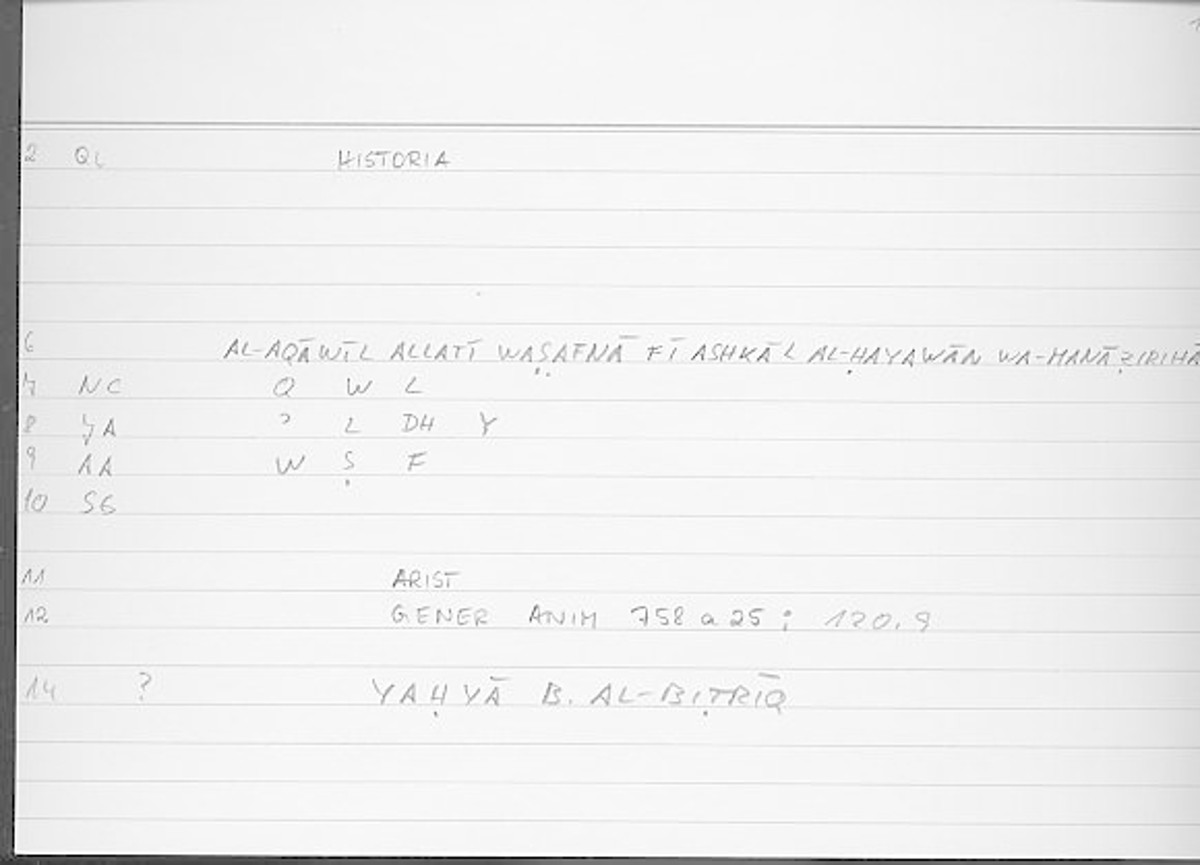 2 QL HISTORIA
6 AL-AQĀWĪL ALLATĪ WAṢAFNĀ FĪ ASHKĀL AL-ḤAYAWĀN WA-MANĀẒIRIHĀ
7 NC Q W L
8 L DH Y
9 AA W Ṣ F
10 SG
11 ARIST
12 GENER ANIM 758 a 25 ; 120.9
14 ? YAḤYĀ B. AL-BIṬRĪQ